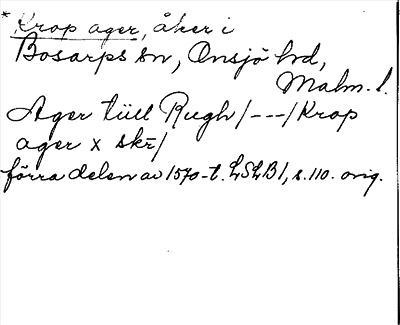 * Krop ager, åker i
Bosarps sn, Onsjö hd,
Malm. l.
Ager tüll Rugh/---/Krop
ager x skr̄/
förra delen av 1570-t. LSLB1, s.110. orig.